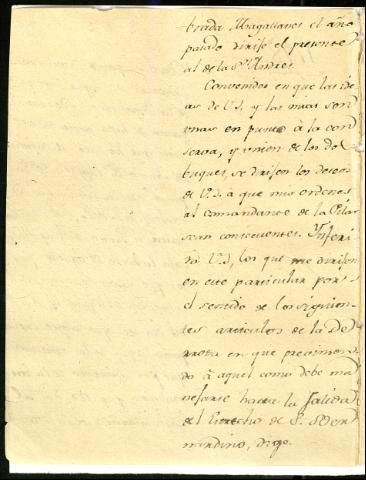 brada Magallanes el año
pasado dirise el presente
al de la Sn Andres.
Convenidos en que las ide
as de V.S. y las mias son
unas en punto à la con
serva, y union de los dos
buques, se dirisen los deseos
de V.S. à que mis ordenes
al comandante de la Pilar
sean consecuentes. Inferi
rà V.S. los que me dirisen
en este particular por
el sentido de los siguien-
tes articulos de la De
rrota en que
do à aquel como debe ma
nejarse hasta la salida
del Estrecho de S. Ber
nardino, digo.